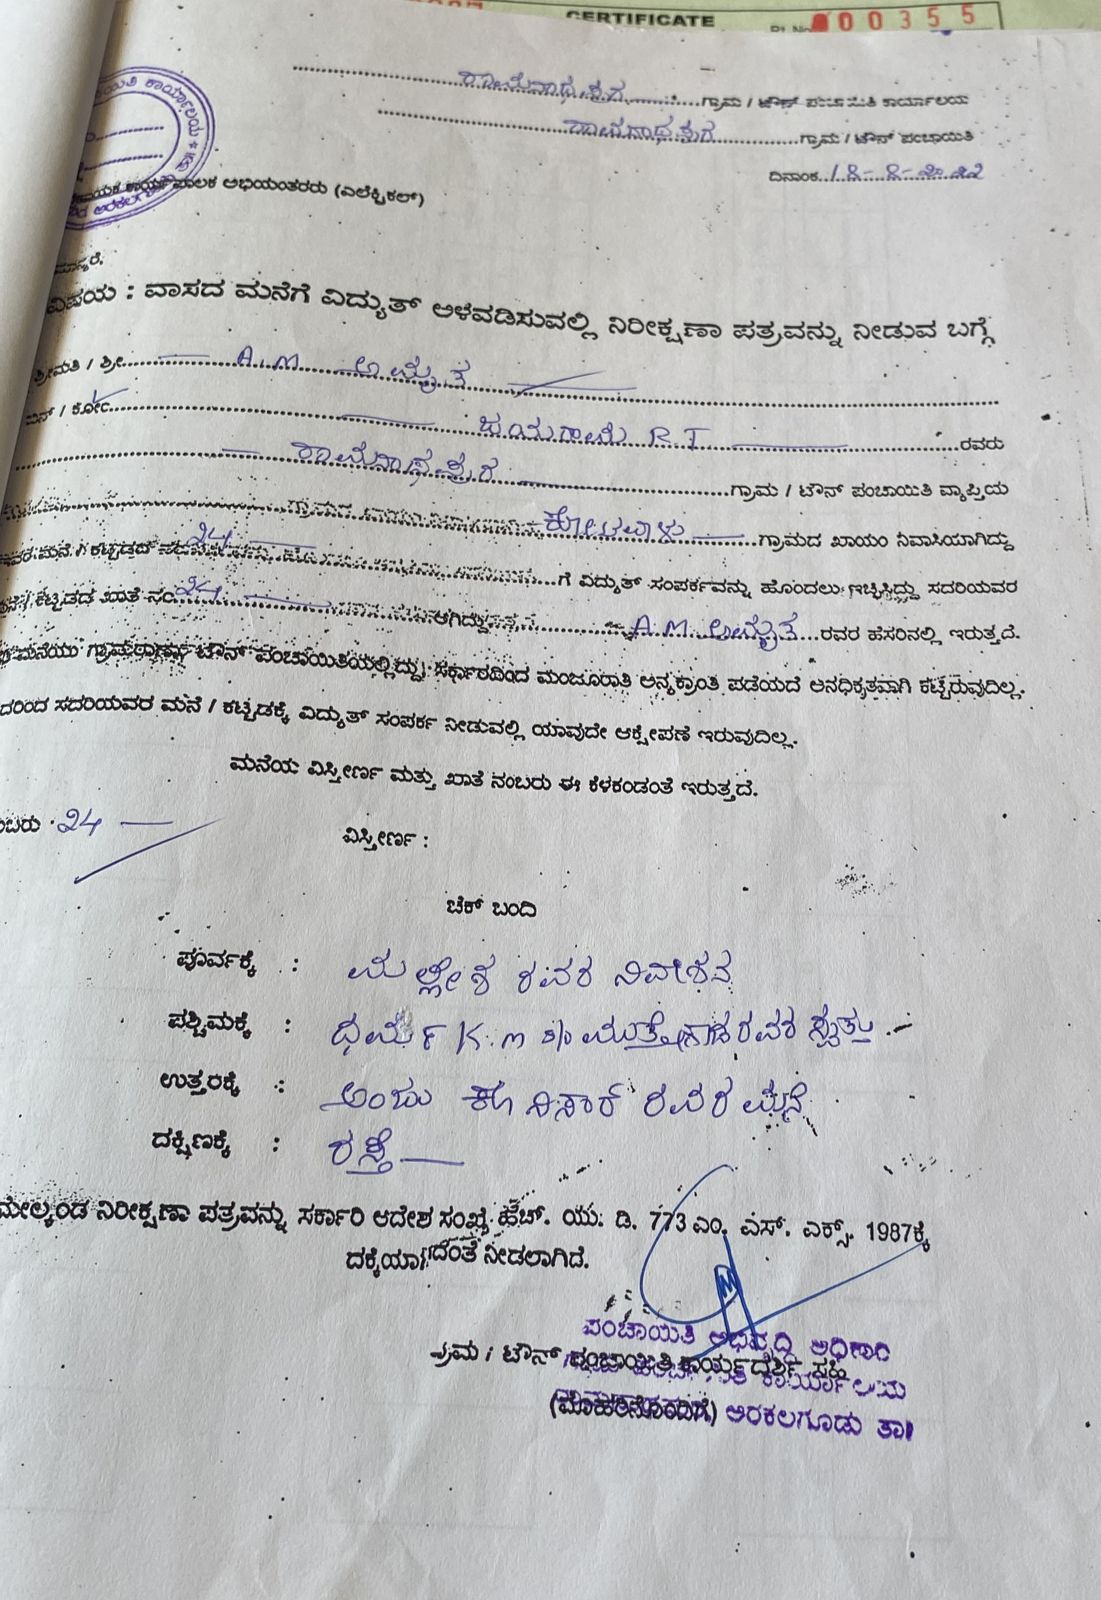 CERTIFICATE
00355
ರಾಮನಾಥಪುರ ಗ್ರಾಮ / ಟೌನ್ ಪಂಚಾಯಿತಿ ಕಾರ್ಯಾಲಯ
ರಾಮನಾಥಪುರ ಗ್ರಾಮ / ಟೌನ್ ಪಂಚಾಯಿತಿ
ದಿನಾಂಕ
ಕಾರ್ಯಪಾಲಕ ಅಭಿಯಂತರರು (ಎಲೆಕ್ಟ್ರಿಕಲ್)
ವಿಷಯ : ವಾಸದ ಮನೆಗೆ ವಿದ್ಯುತ್ ಅಳವಡಿಸುವಲ್ಲಿ ನಿರೀಕ್ಷಣಾ ಪತ್ರವನ್ನು ನೀಡುವ ಬಗ್ಗೆ
ಶ್ರೀಮತಿ / ಶ್ರೀ A.M
ಕೋಂ ಜಯರಾಮೆ R I ರವರು
ರಾಮನಾಥಪುರ ಗ್ರಾಮ / ಟೌನ್ ಪಂಚಾಯಿತಿ ವ್ಯಾಪ್ತಿಯ
ಗ್ರಾಮದ ಖಾಯಂ ನಿವಾಸಿಯಾಗಿದ್ದು
ಮನೆ / ಕಟ್ಟಡದ 24 ಗೆ ವಿದ್ಯುತ್ ಸಂಪರ್ಕವನ್ನು ಹೊಂದಲು ಇಚ್ಛಿಸಿದ್ದು ಸದರಿಯವರ
ಕಟ್ಟಡದ ಖಾತೆ ನಂ 24 ಆಗಿದ್ದು A.M ರವರ ಹೆಸರಿನಲ್ಲಿ ಇರುತ್ತದೆ.
ಮನೆಯು ಗ್ರಾಮಠಾಣಾ / ಟೌನ್ ಪಂಚಾಯಿತಿಯಲ್ಲಿದ್ದು ಸರ್ಕಾರದಿಂದ ಮಂಜೂರಾತಿ ಅನ್ಯಕ್ರಾಂತಿ ಪಡೆಯದೆ ಅನಧಿಕೃತವಾಗಿ ಕಟ್ಟಿರುವುದಿಲ್ಲ.
ದರಿಂದ ಸದರಿಯವರ ಮನೆ / ಕಟ್ಟಡಕ್ಕೆ ವಿದ್ಯುತ್ ಸಂಪರ್ಕ ನೀಡುವಲ್ಲಿ ಯಾವುದೇ ಆಕ್ಷೇಪಣೆ ಇರುವುದಿಲ್ಲ.
ಮನೆಯ ವಿಸ್ತೀರ್ಣ ಮತ್ತು ಖಾತೆ ನಂಬರು ಈ ಕೆಳಕಂಡಂತೆ ಇರುತ್ತದೆ.
ಂಬರು 24 ವಿಸ್ತೀರ್ಣ :
ಚೆಕ್ ಬಂದಿ
ಪೂರ್ವಕ್ಕೆ : ಮಲ್ಲೇಶ ರವರ ನಿವೇಶನ
ಪಶ್ಚಿಮಕ್ಕೆ : ಧರ್ಮ K.m s/o ಮುತ್ತೇಗೌಡರವರ ಸ್ವತ್ತು
ಉತ್ತರಕ್ಕೆ : ರವರ ಮನೆ
ದಕ್ಷಿಣಕ್ಕೆ : ರಸ್ತೆ
ಮೇಲ್ಕಂಡ ನಿರೀಕ್ಷಣಾ ಪತ್ರವನ್ನು ಸರ್ಕಾರಿ ಆದೇಶ ಸಂಖ್ಯೆ ಹೆಚ್. ಯು. ಡಿ. 773 ಎಂ. ಎಸ್. ಎಕ್ಸ್. 1987ಕ್ಕೆ
ದಕ್ಕೆಯಾಗದಂತೆ ನೀಡಲಾಗಿದೆ.
ಪಂಚಾಯಿತಿ ಅಭಿವೃದ್ಧಿ ಅಧಿಕಾರಿ
ಟೌನ್ ಪಂಚಾಯಿತಿ ಕಾರ್ಯದರ್ಶಿ ಸಹಿ
(ಮೊಹರಿನೊಂದಿಗೆ) ಅರಕಲಗೂಡು ತಾ॥